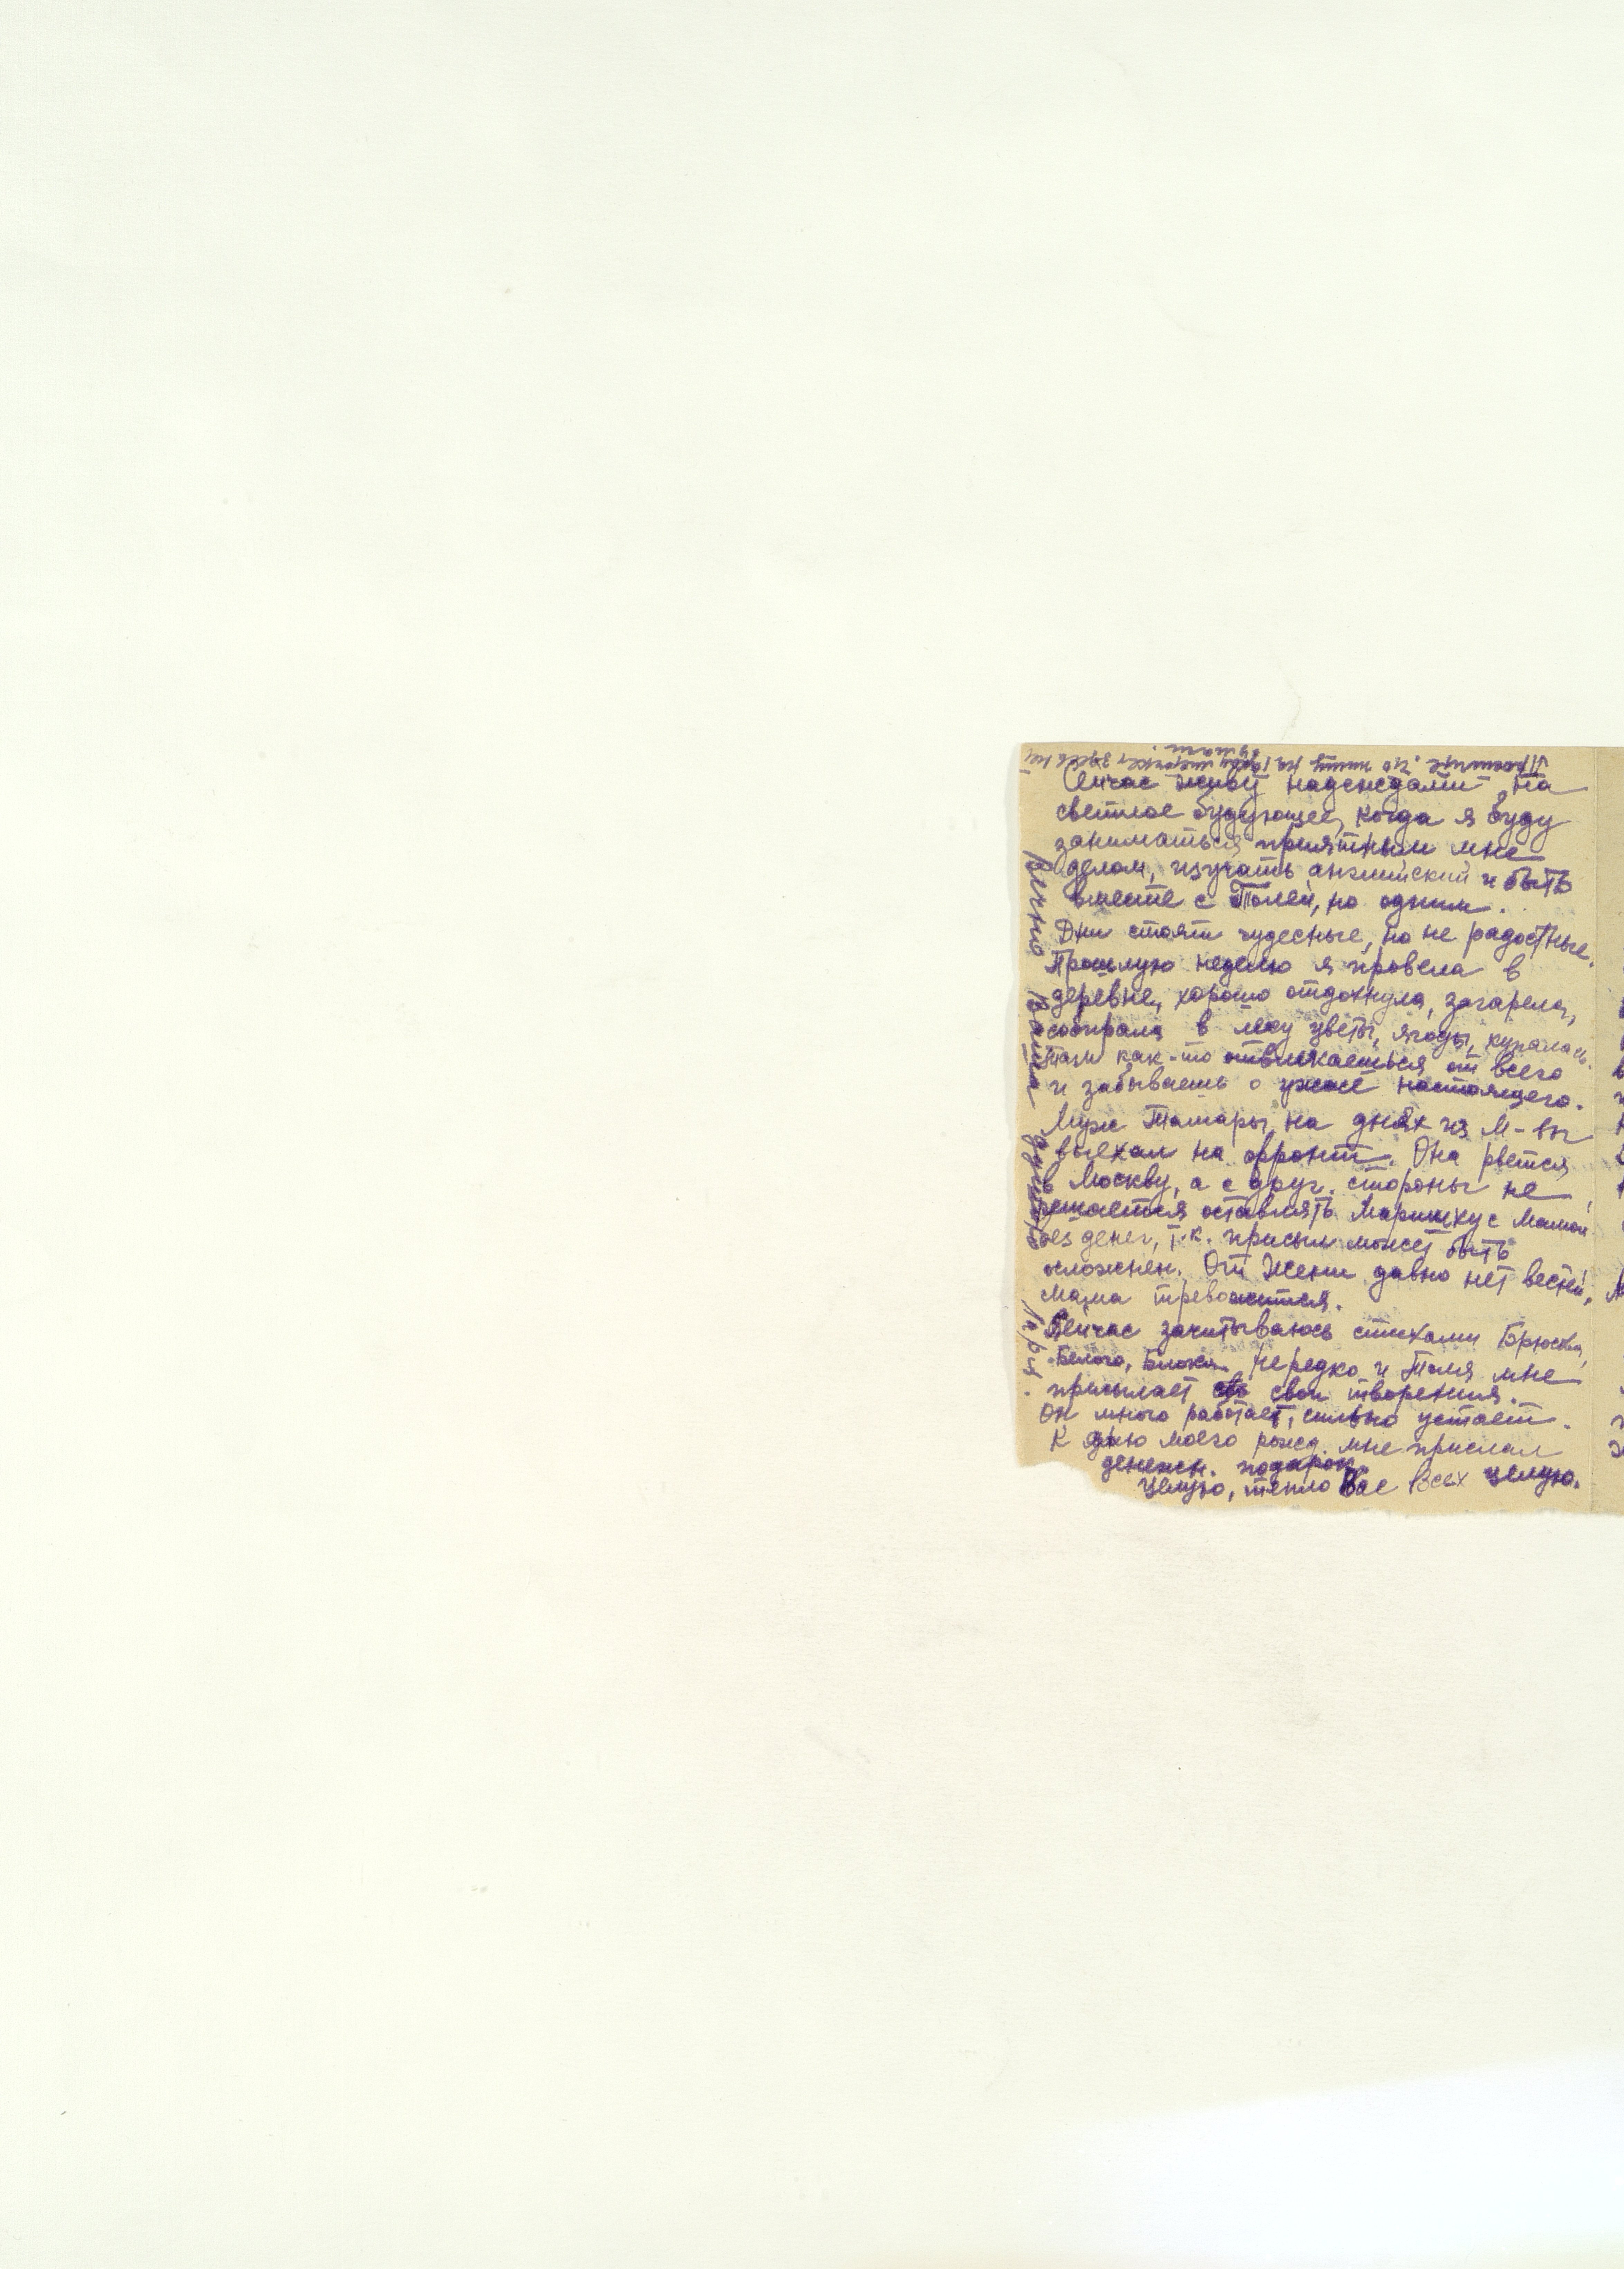 Сейчас живу надеждами на
светлое будующее, когда я буду
заниматься приятным мне
делом, изучать английский и быть
вместе с Толей, но одним.
Дни стоят чудесные, но не радостные.
Прошлую неделю я провела в
деревне, хорошо отдохнула, загарела,
собирала в лесу цветы, ягоды, купалась.
Там как-то отвлекаешься от всего
и забываешь о ужасе настоящего.
Муж Тамары на днях из М-вы
выехал на фронт. Она рвется
в Москву, а с друг. стороны не
решается оставлять Маришку с мамой
без денег, т.к. присыл может быть
осложнен. От Жени давно нет вестей,
мама тревожится.
Сейчас зачитываюсь стихами Брюсова,
Белого, Блока. Нередко и Толя мне
присылает свои творения.
Он много работает, сильно устает.
К дню моего рожд. мне прислал
денежн. подарок.
Целую, тепло Вас всех целую.
Вечно Ваша душою
Простите, что пишу на листочках, здесь нет
бумаги.